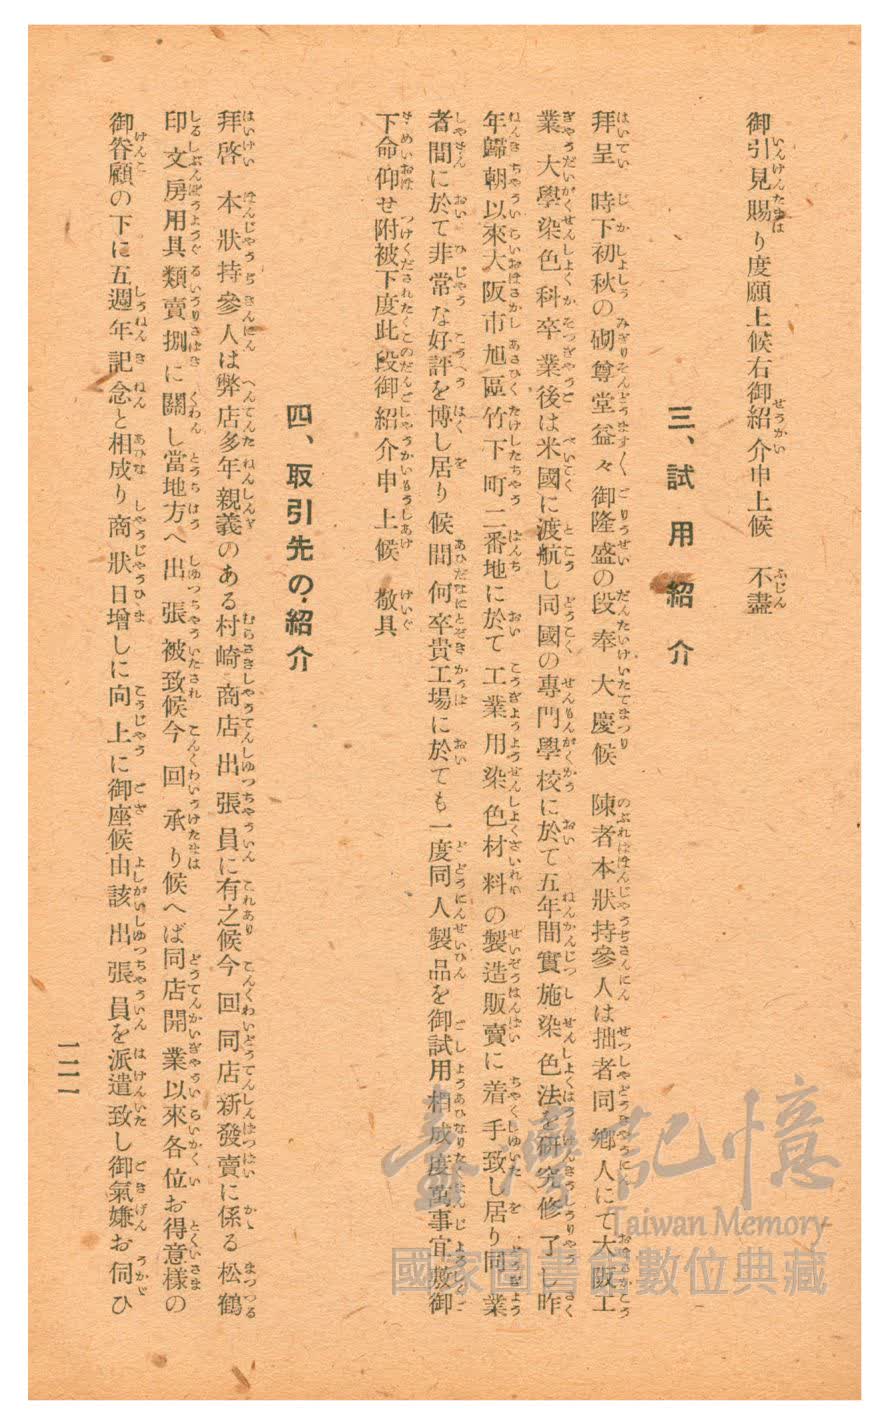 御引見賜り度願上候右御紹介申上候　不盡
三、試用紹介
拜呈　時下初秋の砌尊堂益々御隆盛の段奉大慶候　陳者本狀持參人は拙者同鄕人にて大阪工
業大學染色科卒業後は米國に渡航し同國の專門學校に於て五年間實施染色法を硏究修了し昨
年歸朝以來大阪市旭區竹下町二番地に於て工業用染色材料の製造販賣に着手致し居り同業
者間に於て非常な好評を博し居り候間何卒貴工場に於ても一度同人製品を御試用相成度萬事宜敷御
下命仰せ附被下度此段御紹介申上候　敬具
四、取引先の紹介
拜啓　本狀持參人は弊店多年親義のある村崎商店出張員に有之候今回同店新發賣に係る松鶴
印文房用具類賣捌に關し當地方へ出張被致候今回承り候へば同店開業以來各位お得意樣の
御眷顧の下に五週年記念と相成り商狀日增しに向上に御座候由該出張員を派遣致し御氣嫌お伺ひ
一二一
臺灣記憶
Taiwan Memory
國家圖書館數位典藏